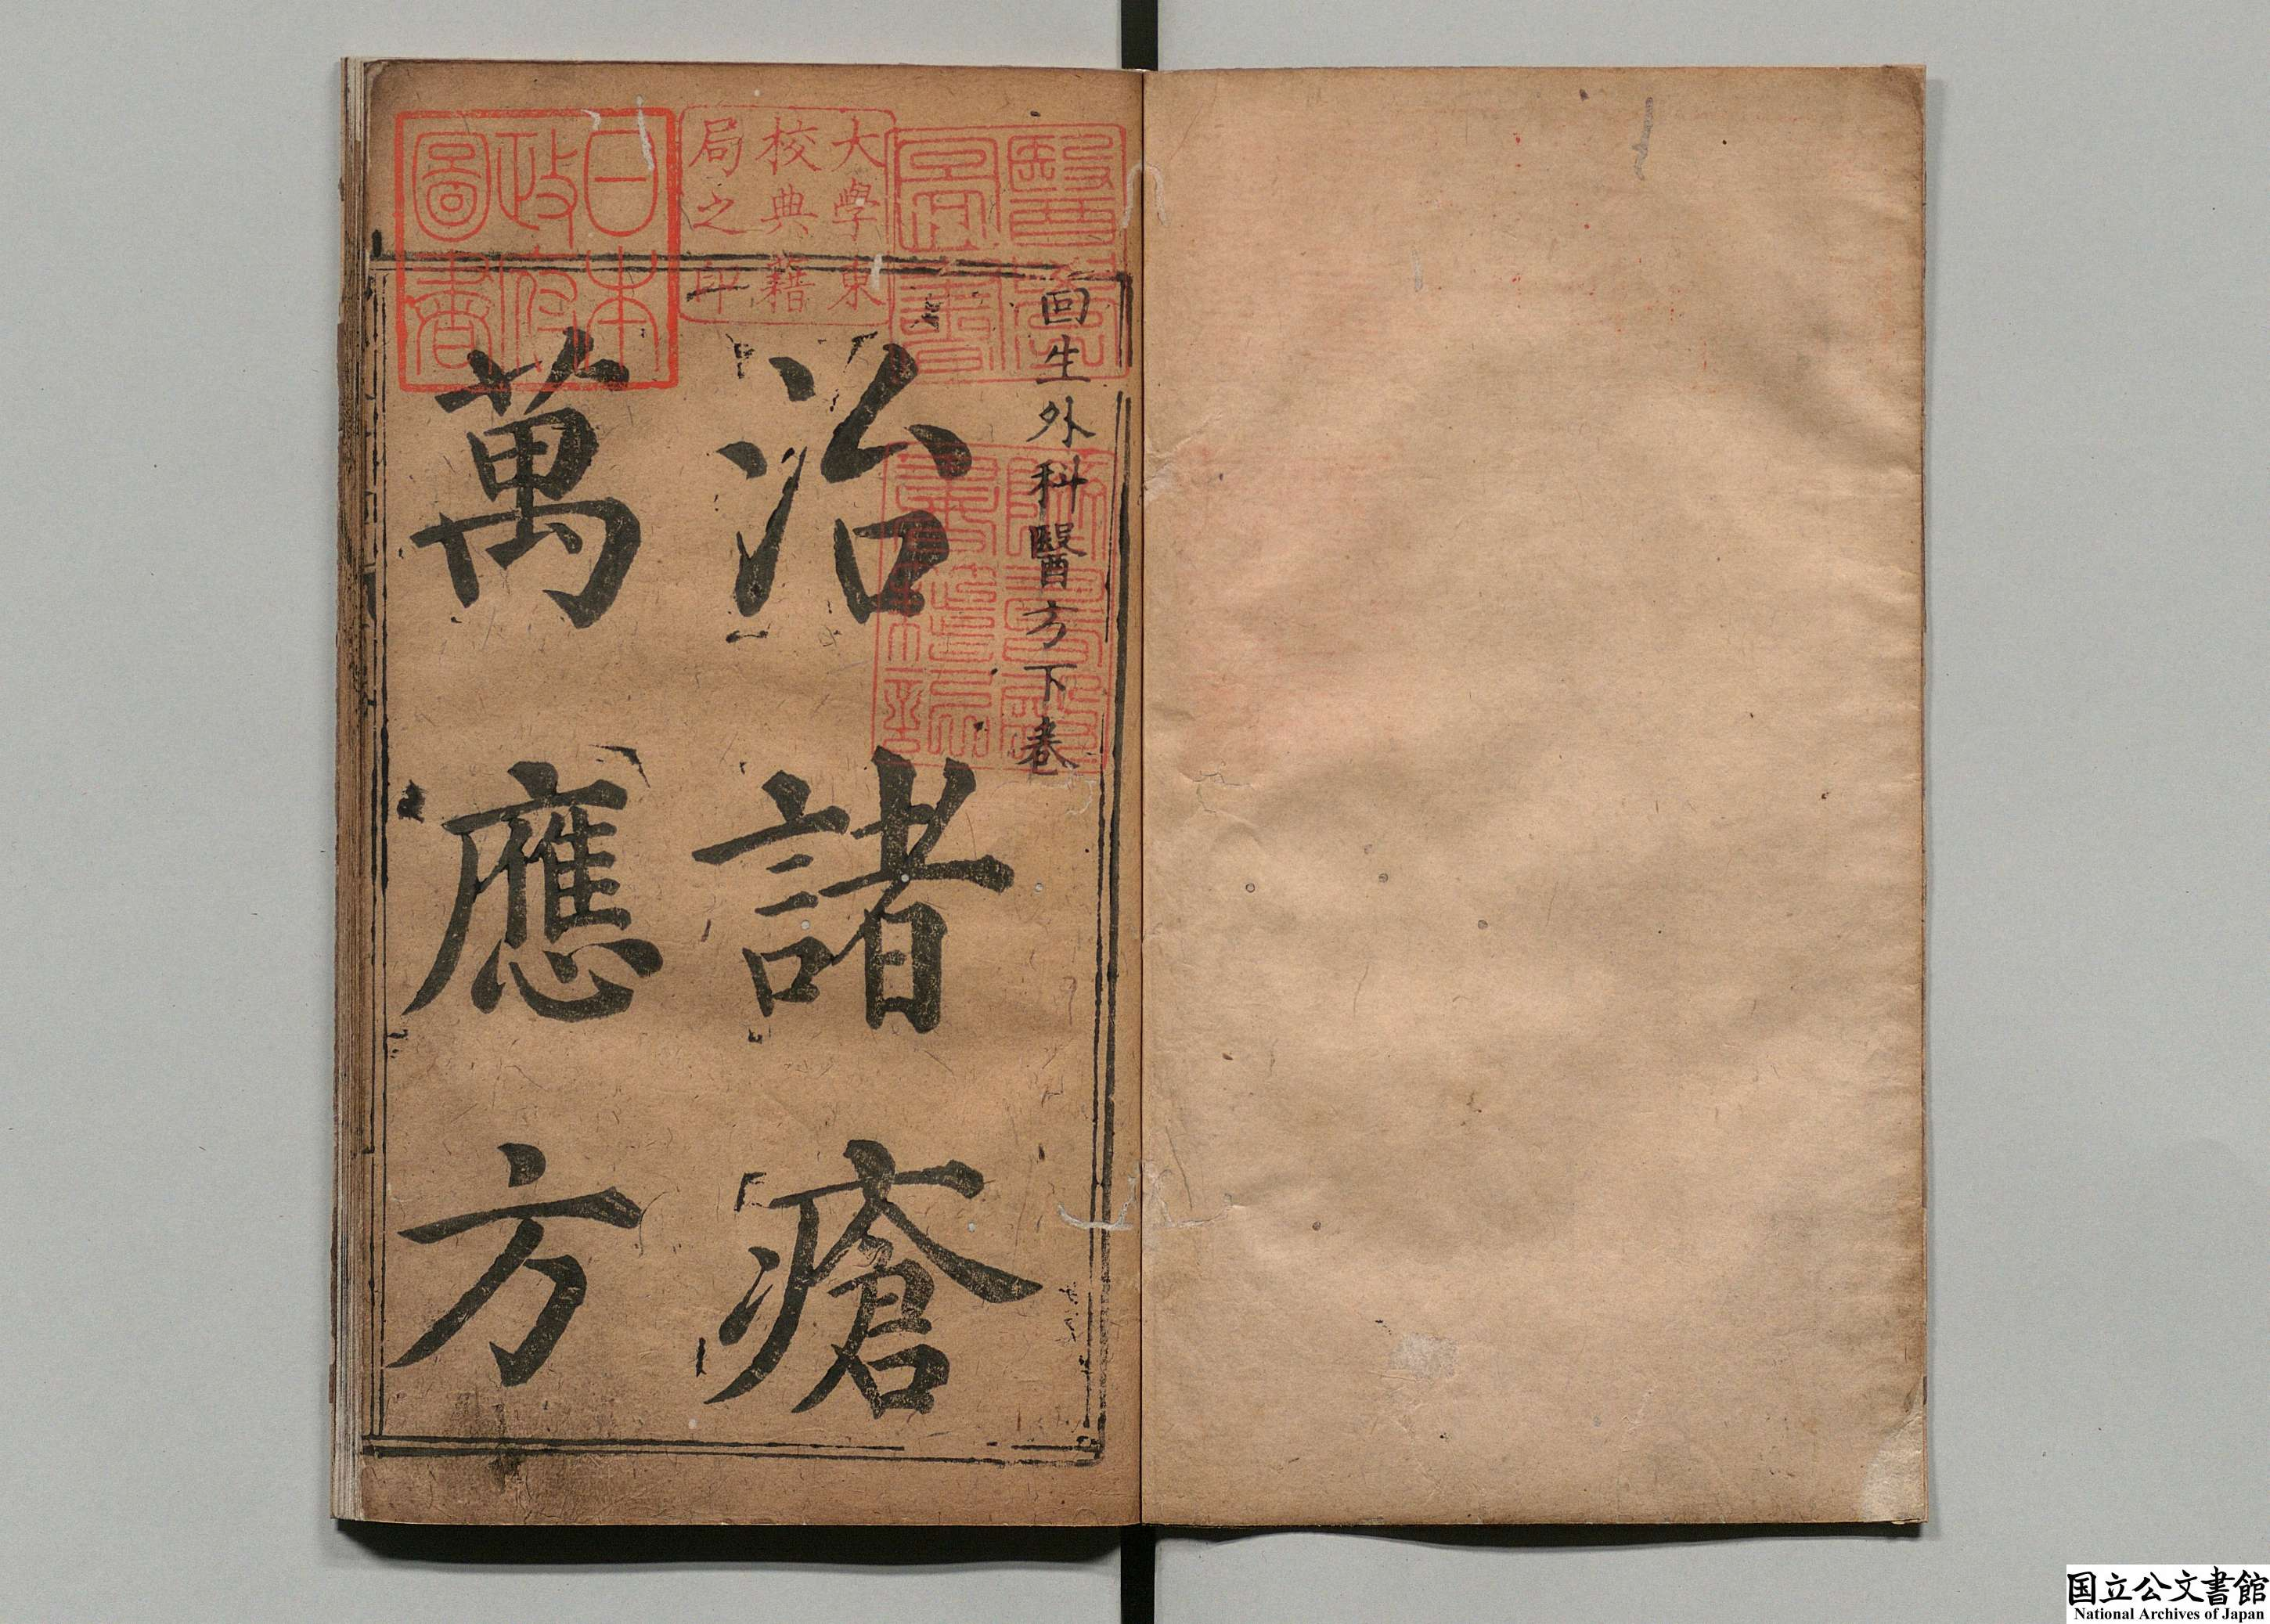 回生外科醫方下卷
治諸瘡
萬應方
醫學圖書
大學東
校典籍
局之印
日本
政府
圖書
国立公文書館
National Archives of Japan